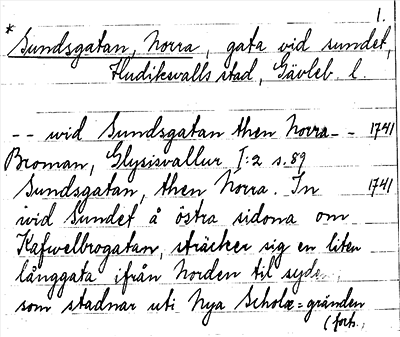 1.
* Sundsgatan, Norra, gata vid sundet,
Hudiksvalls stad, Gävleb. l.
-- wid Sundsgatan then Norra -- 1741
Broman, Glysisvallur I:2 s. 89
Sundsgatan, then Norra. In 1741
wid Sundet å östra sidona om
Kafwelbrogatan, sträcker sig en liten
långgata ifrån Norden til syder
som stadnar uti Nya Scholæ=gränden
(forts.